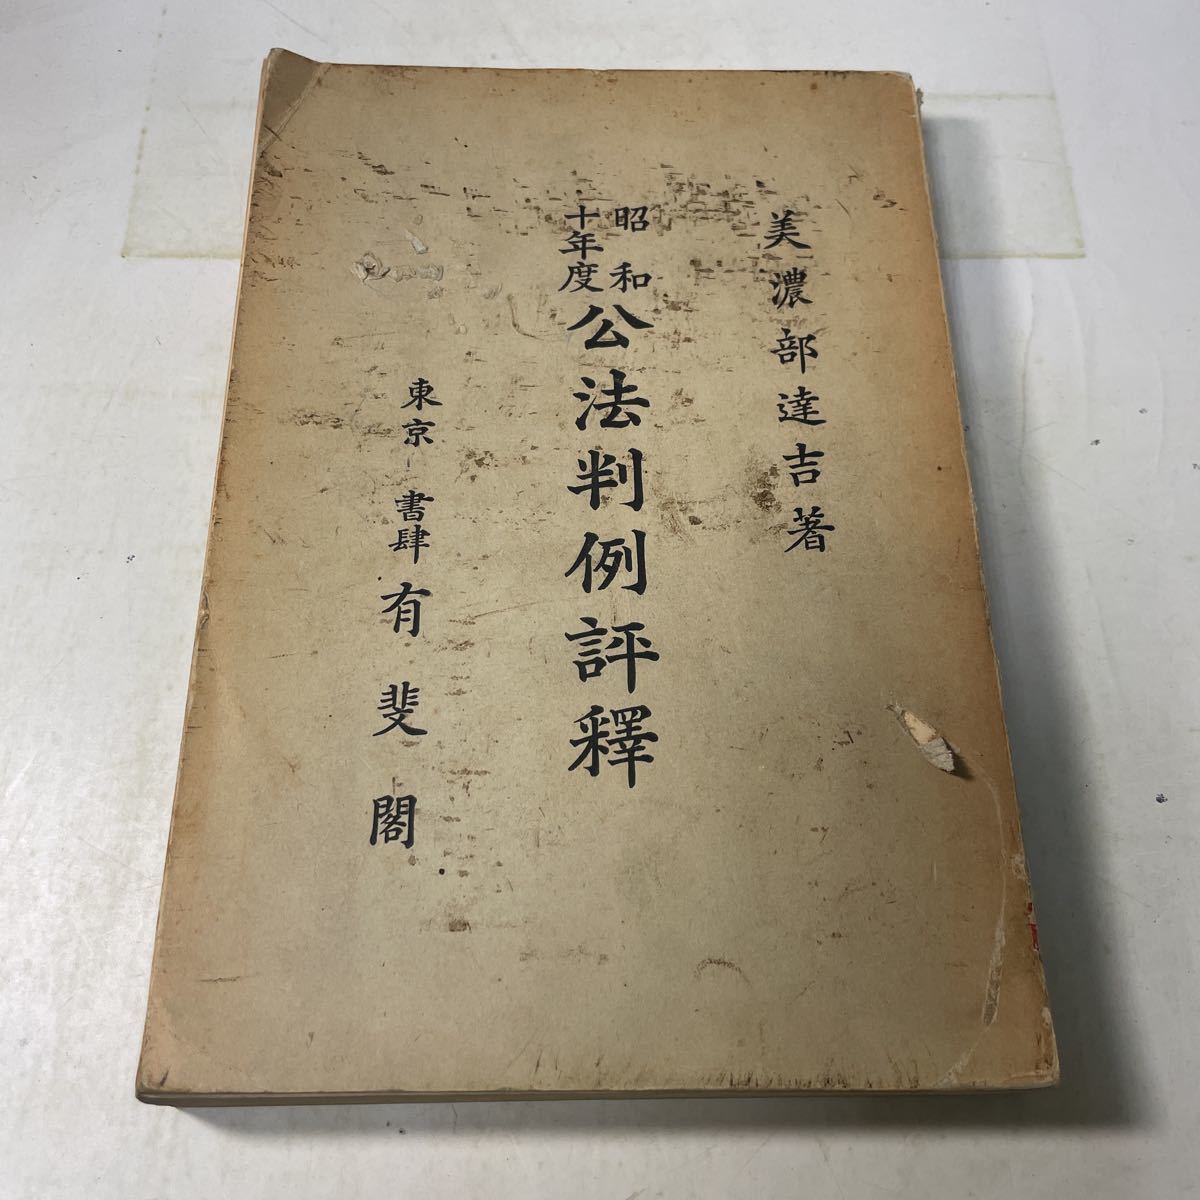 美濃部達吉著
昭和
十年度
公法判例評釋
東京 書肆 有斐閣